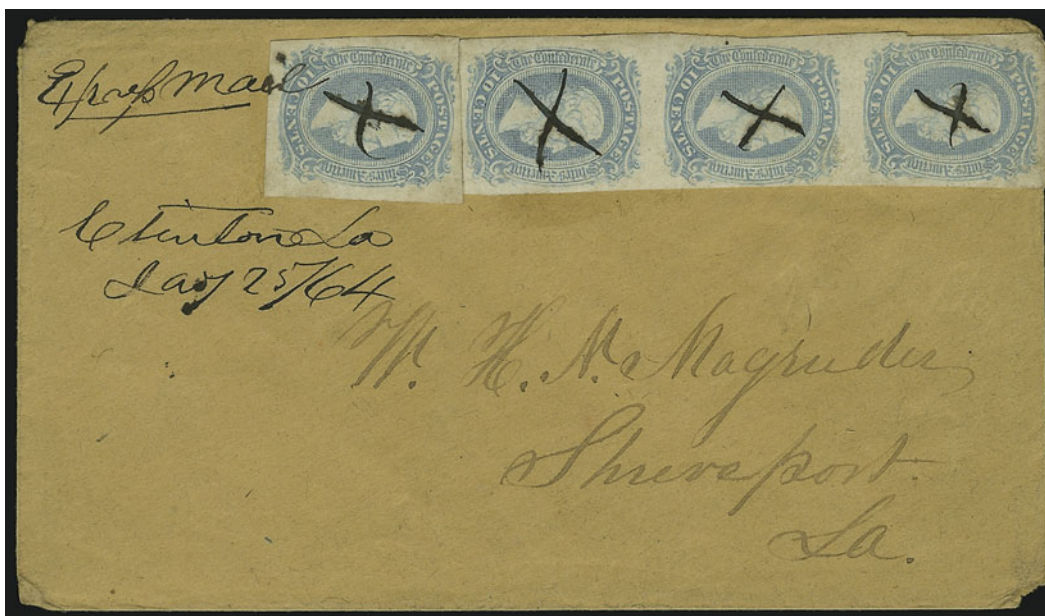 Express Mail
The Confederate States of America POSTAGE 10 CENTS
The Confederate States of America POSTAGE 10 CENTS
The Confederate States of America POSTAGE 10 CENTS
The Confederate States of America POSTAGE 10 CENTS
Clinton La
Jany 25/64
W. H. N. Magruder
Shreveport.
La.